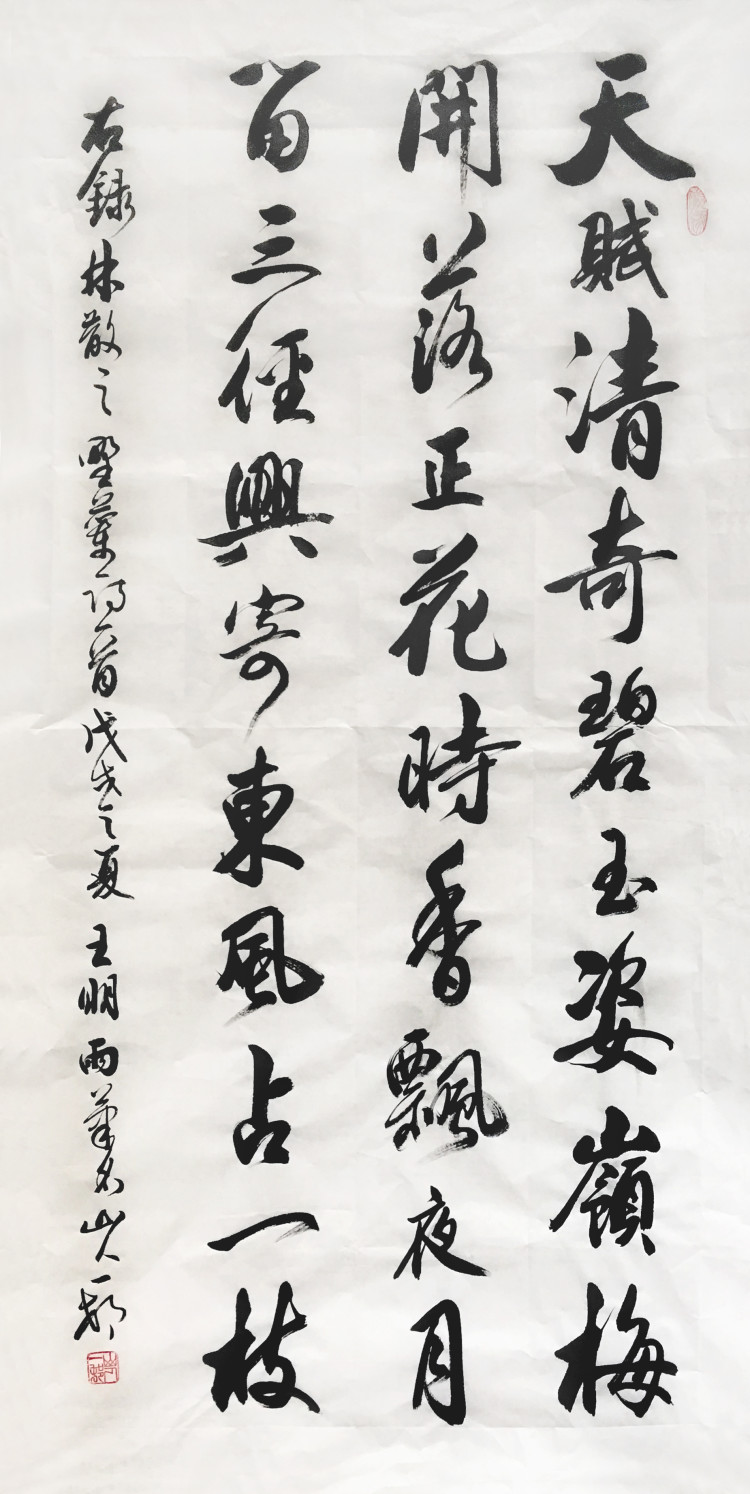 天賦清奇碧玉姿嶺梅
開落正花時香飄夜月
留三徑興寄東風占一枝
右錄林散之野蘭詩一首戊戌之夏王明雨